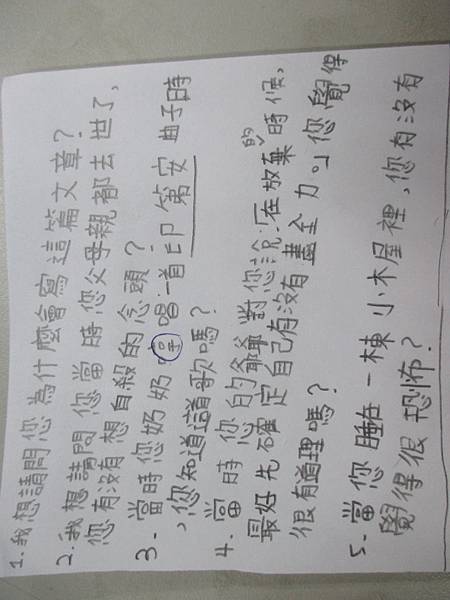 1.我想請問您為什麼會寫這篇文章?
2.我想請問您當時您父母親都去世了,
您有沒有想自殺的念頭?
3.當時您奶奶哼唱一首印第安曲子時
,您知道這歌嗎?
4.當時您的爺爺對您說:「在放棄的時候,
最好先確定自己有沒有盡全力。」您覺得
很有道理嗎?
5.當您睡在一棟小木屋裡,您有沒有
覺得很恐怖?